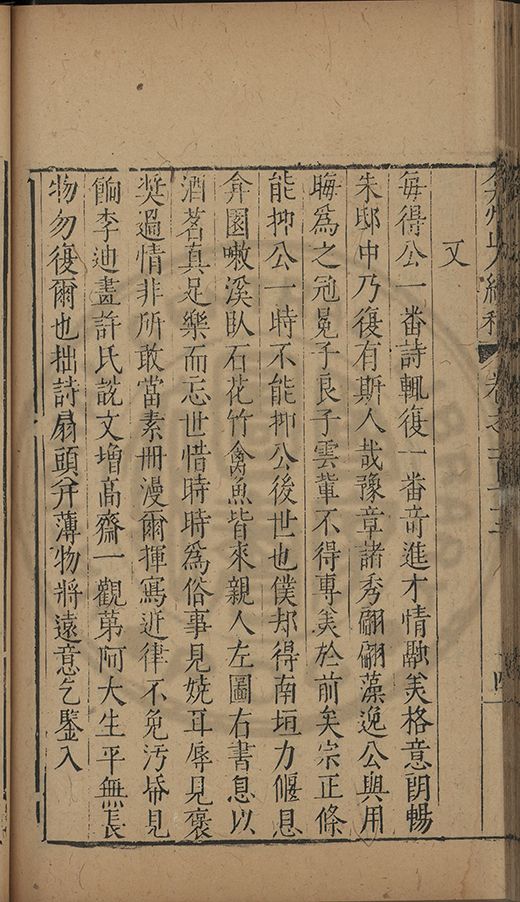 弇州山人續稿 卷之一百
四
又
每得公一番詩輒復一番竒進才情融美格意朗暢
朱邸中乃復有斯人哉豫章諸秀翩翩藻逸公與用
晦為之冠冕子良子雲輩不得專美於前矣宗正條
能抑公一時不能抑公後世也僕却得南垣力偃息
弇園嗽溪臥石花竹禽魚皆來親人左圖右書息以
酒茗真足樂而忘世惜時時為俗事見嬈耳辱見褒
奬過情非所敢當素冊漫爾揮寫近律不免汚㡀見
餉李迪畫許氏說文增高齋一觀第阿大生平無長
物勿復爾也拙詩扇頭并薄物將遠意乞鑒入